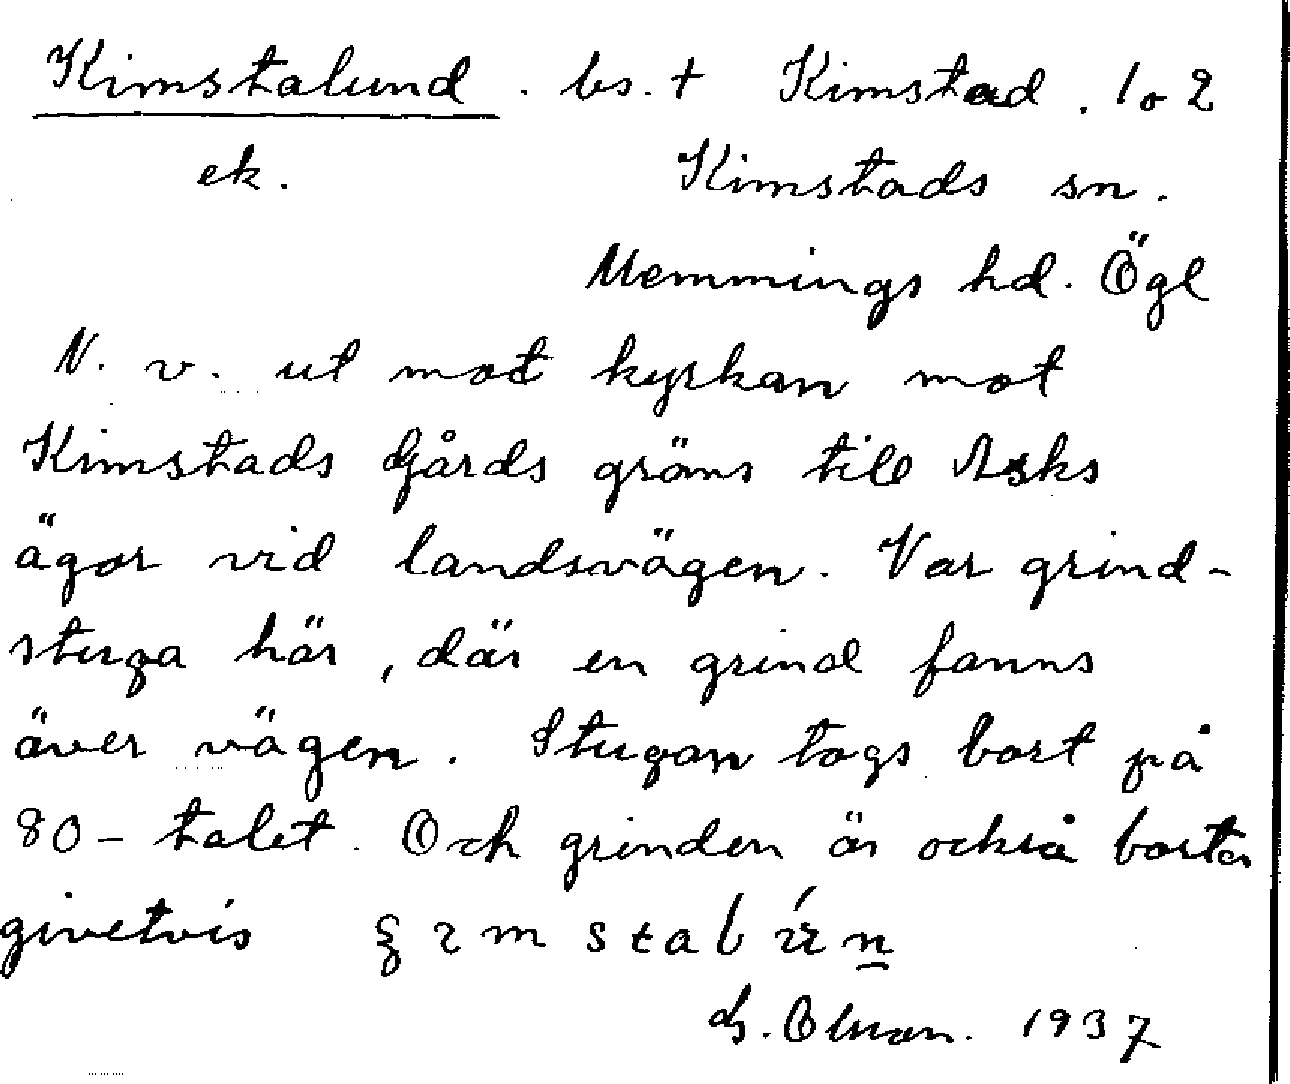 Kimstalund . bs. † Kimstad . 1 o 2
ek. Kimstads sn.
Memmings hd. Ögl
N. v. ut mot kyrkan mot
Kimstads Gårds gräns till Asks
ägor vid landsvägen. Var grind-
stuga här, där en grind fanns
över vägen. Stugan togs bort på
80-talet. Och grinden är också borta
givetvis
G. Olsson. 1937